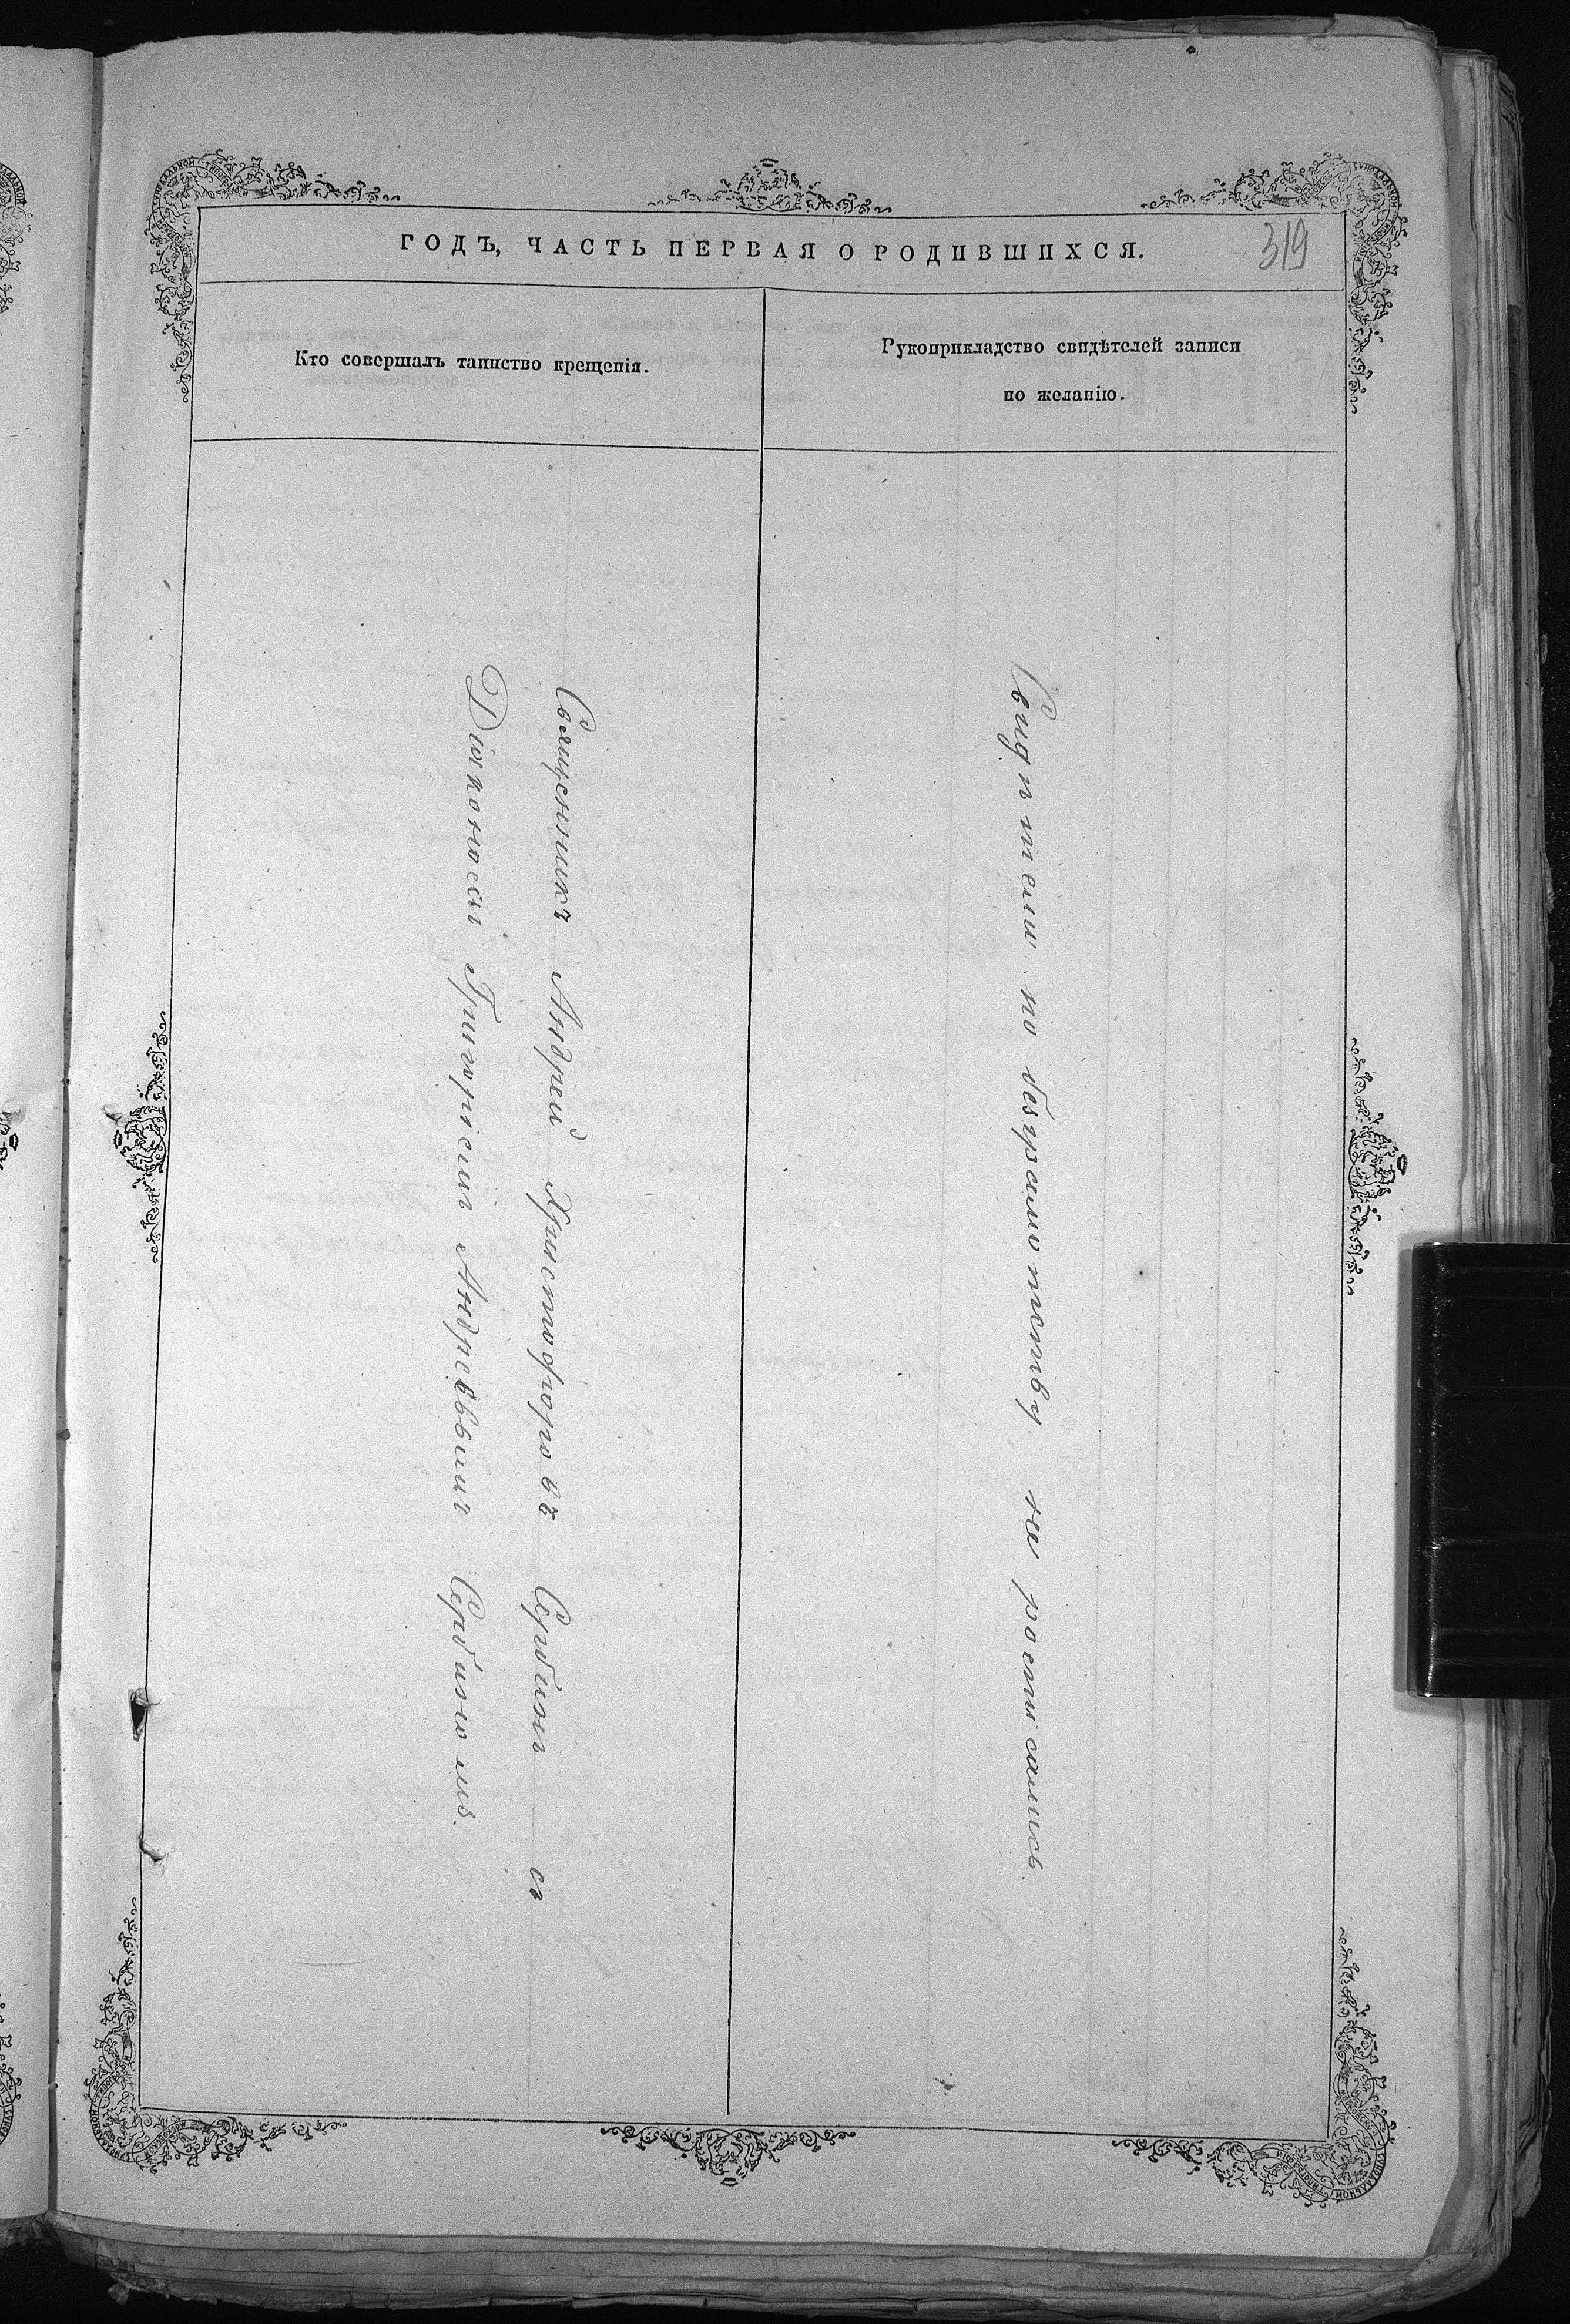 ГОДЪ, ЧАСТЬ ПЕРВАЯ О РОДИВШИХСЯ.
319
Кто совершалъ таинство крещенія.
Рукоприкладство свидѣтелей записи
по желанію.
Священникъ Андрей Христофоровъ Сербинъ съ
Діякономъ Григоріемъ Андреевымъ Сербиномъ.
Свидѣтели по безграмотству не росписались.